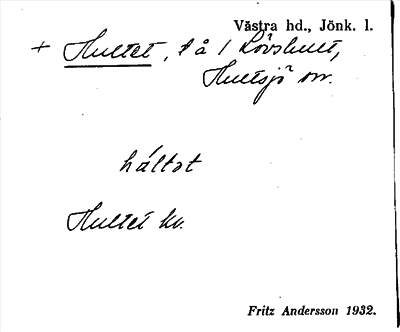 Västra hd., Jönk. l.
+ Hultet, t å 1 Lövshult,
Hultsjö sn.
håltet
Hultet kv.
Fritz Andersson 1932.